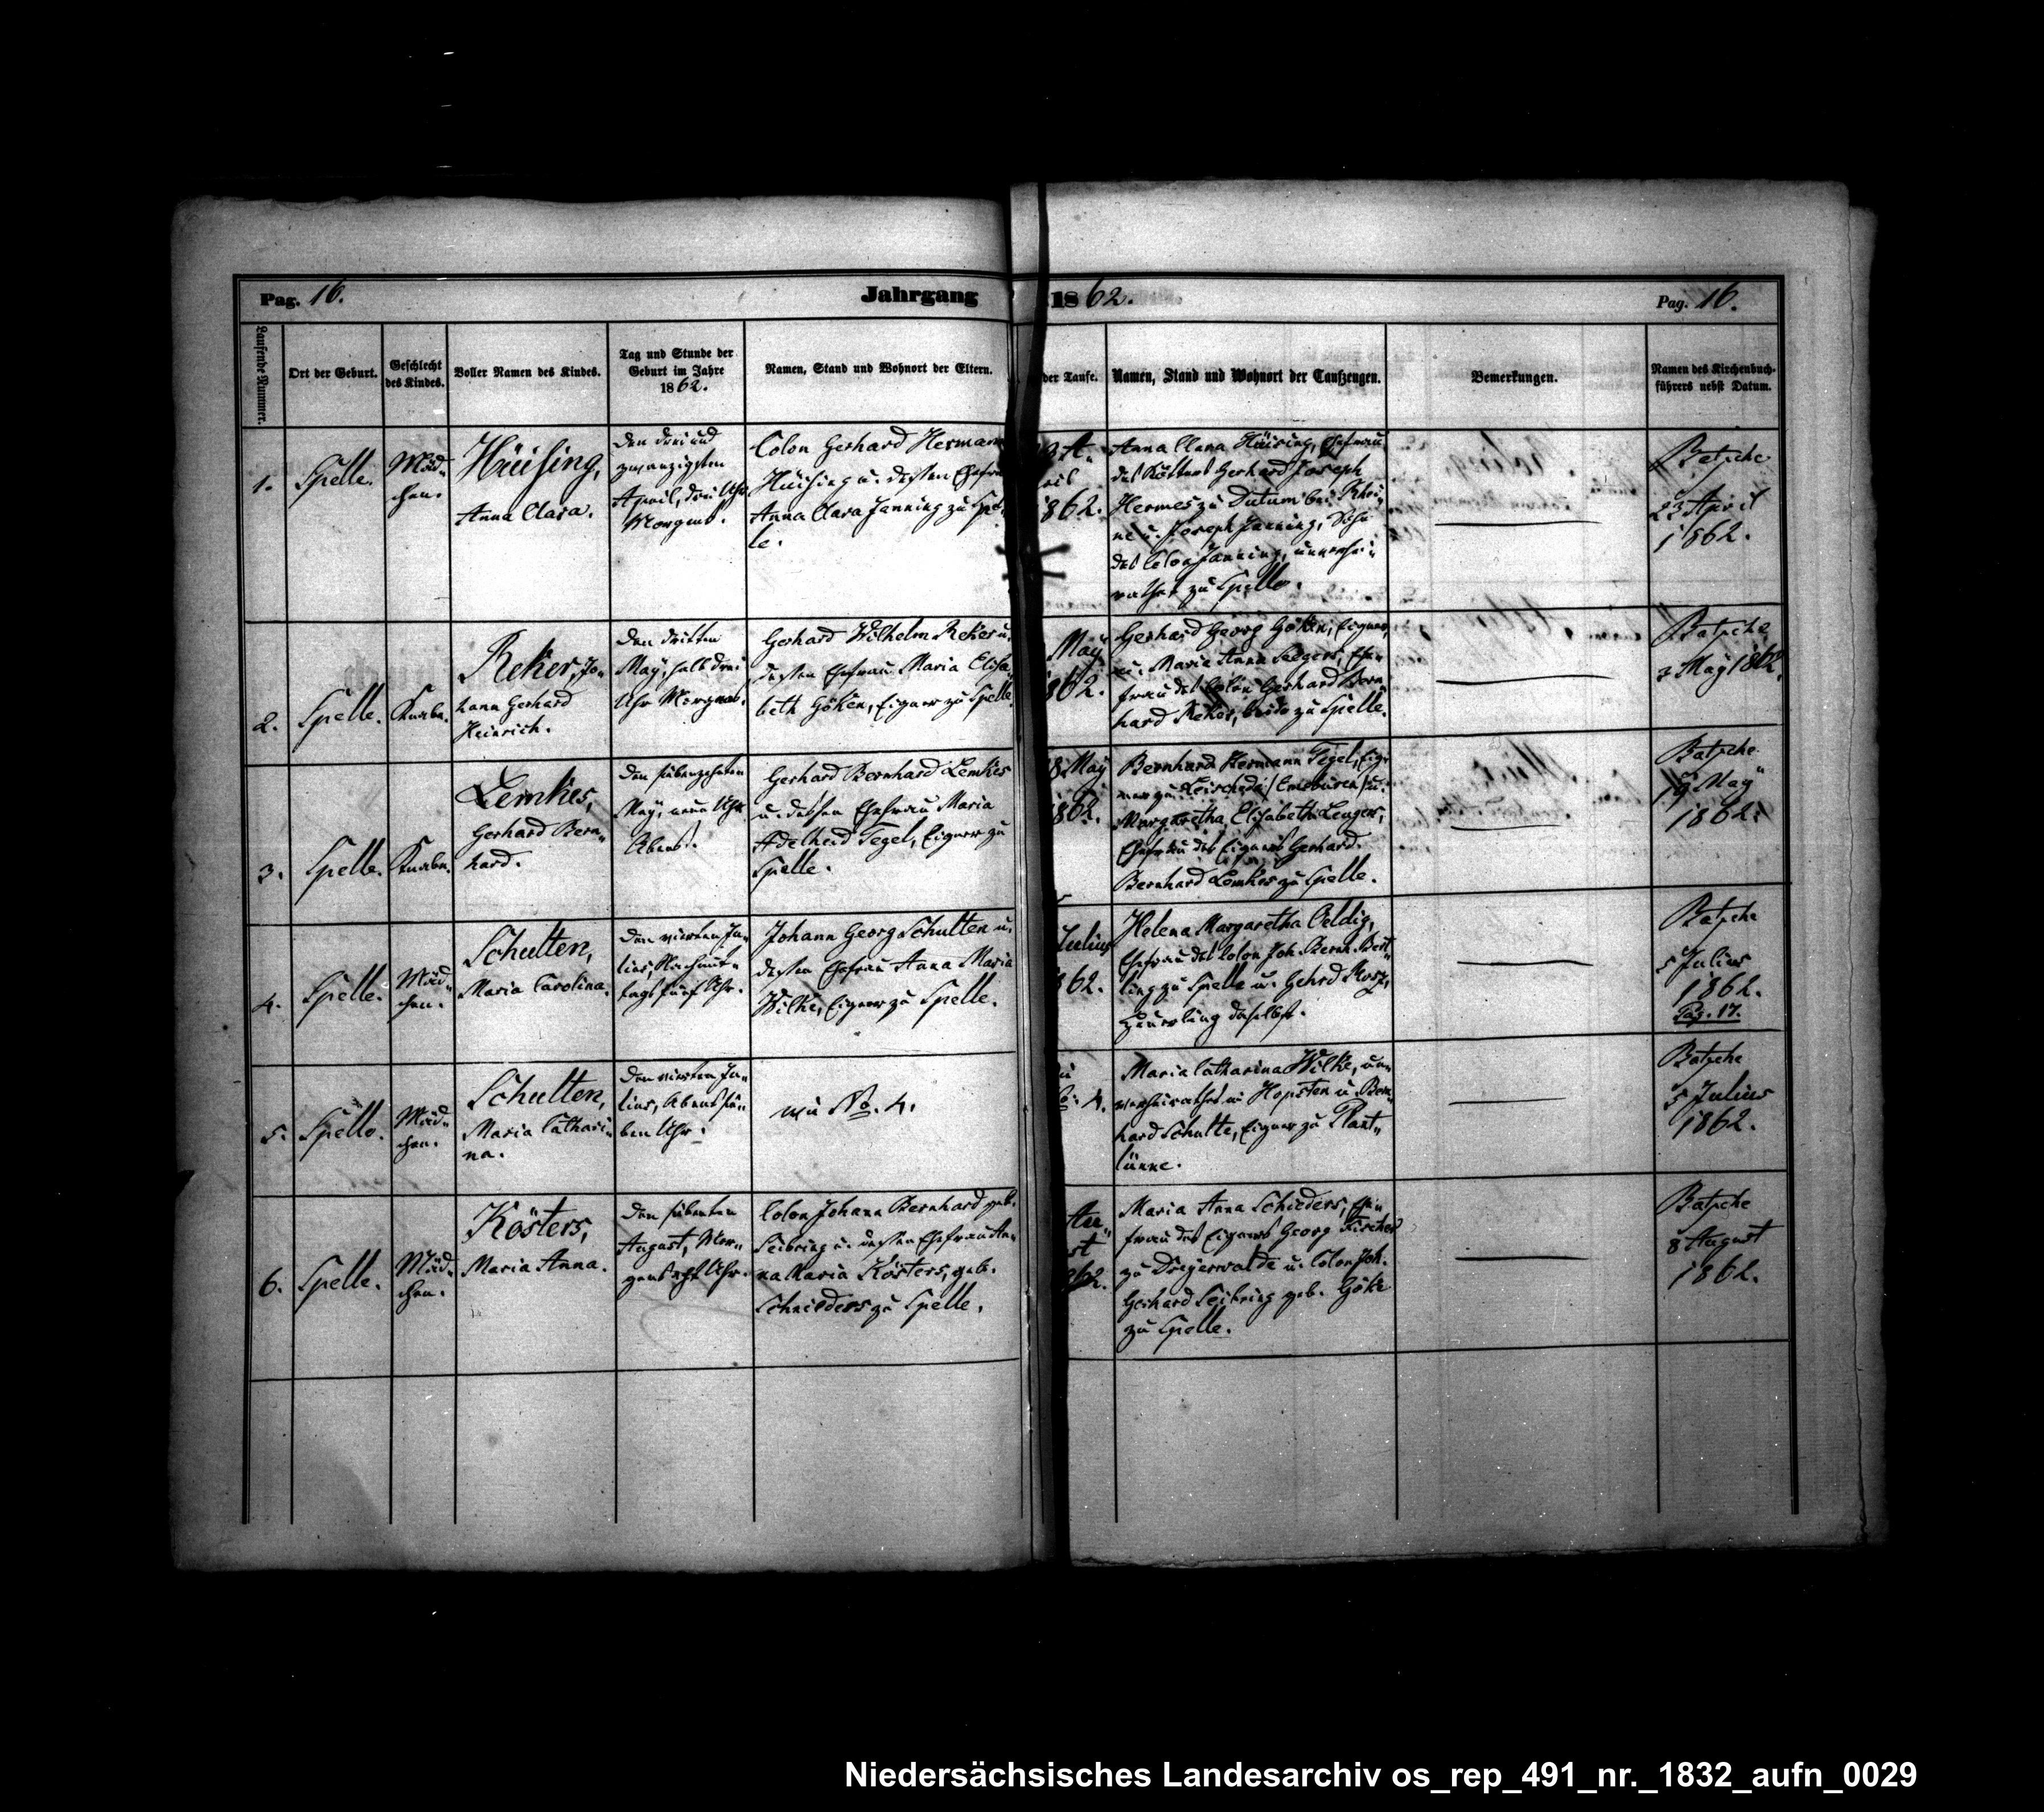 Pag. 16.
Jahrgang 1862.
Pag. 16.
Laufende Nummer.
Ort der Geburt.
Geschlecht
des Kindes.
Voller Namen des Kindes.
Tag und Stunde der
Geburt im Jahre
1862.
Namen, Stand und Wohnort der Eltern.
der Taufe.
Namen, Stand und Wohnort der Taufzeugen.
Bemerkungen.
Namen des Kirchenbuch-
führers nebst Datum.
1.
Spelle.
Mäd-
chen.
Hüising,
Anna Clara.
den drei und
zwanzigsten
April, drei Uhr
Morgens.
Colon Gerhard Hermann
Hüising u. dessen Ehefrau
Anna Clara Janning zu Spel-
le.
3 A-
ril
862.
Anna Clara Hüising, Ehefrau
des Kötters Gerhard Joseph
Hermes zu Dutum bei Rhei-
ne u. Joseph Janning, Sohn
des Colon Janning, unverhei-
rathet zu Spelle.
Batsche
23 April
1862.
2.
Spelle.
Knabe.
Reker, Jo-
hann Gerhard
Heinrich.
den dritten
May, halb drei
Uhr Morgens.
Gerhard Wilhelm Reker u.
dessen Ehefrau Maria Elisa-
beth Göken, Eigner zu Spelle.
May
862.
Gerhard Georg Göken, Eigner,
u. Maria Anna Seegers, Ehe-
frau des Colon Gerhard Bern-
hard Reker, beide zu Spelle.
Batsche
3 May 1862.
3.
Spelle.
Knabe.
Lemkes,
Gerhard Bern-
hard.
den siebenzehnten
May, neun Uhr
Abends.
Gerhard Bernhard Lemkes
u. dessen Ehefrau Maria
Adelheid Tegel, Eigner zu
Spelle.
18 May
1862.
Bernhard Hermann Tegel, Eig-
ner zu Leischede /Emsbüren/ u.
Margaretha Elisabeth Lenger,
Ehefrau des Eigners Gerhard
Bernhard Lemkes zu Spelle.
Batsche
19 May
1862.
4.
Spelle.
Mäd-
chen.
Schulten,
Maria Carolina.
den vierten Ju-
lius, Nachmit-
tags fünf Uhr.
Johann Georg Schulten u.
dessen Ehefrau Anna Maria
Wilke, Eigner zu Spelle.
Julius
862.
Helena Margaretha Oeldig,
Ehefrau des Colon Joh. Bernh. Bert-
ling zu Spelle u. Gehrd
Heuerling daselbst.
Batsche
5 Julius
1862.
Pag. 17.
5.
Spelle.
Mäd-
chen.
Schulten,
Maria Cathari-
na.
den vierten Ju-
lius, Abends sie-
ben Uhr.
wie No. 4.
4.
Maria Catharina Wilke, un-
verheirathet in Hopsten u. Bern-
hard Schulte, Eigner zu Plant-
lünne.
Batsche
5 Julius
1862.
6.
Spelle.
Mäd-
chen.
Kösters,
Maria Anna.
den siebenten
August, Mor-
gens acht Uhr.
Colon Johann Bernhard geb.
Seibring u. dessen Ehefrau An-
na Maria Kösters, geb.
Schnieders zu Spelle.
Au-
st
862.
Maria Anna Schnieders, Ehe-
frau des Eigners Georg Fischer
zu Dreyerwalde u. Colon Joh.
Gerhard Seibring geb. Göke
zu Spelle.
Batsche
8 August
1862.
Niedersächsisches Landesarchiv os_rep_491_nr._1832_aufn_0029